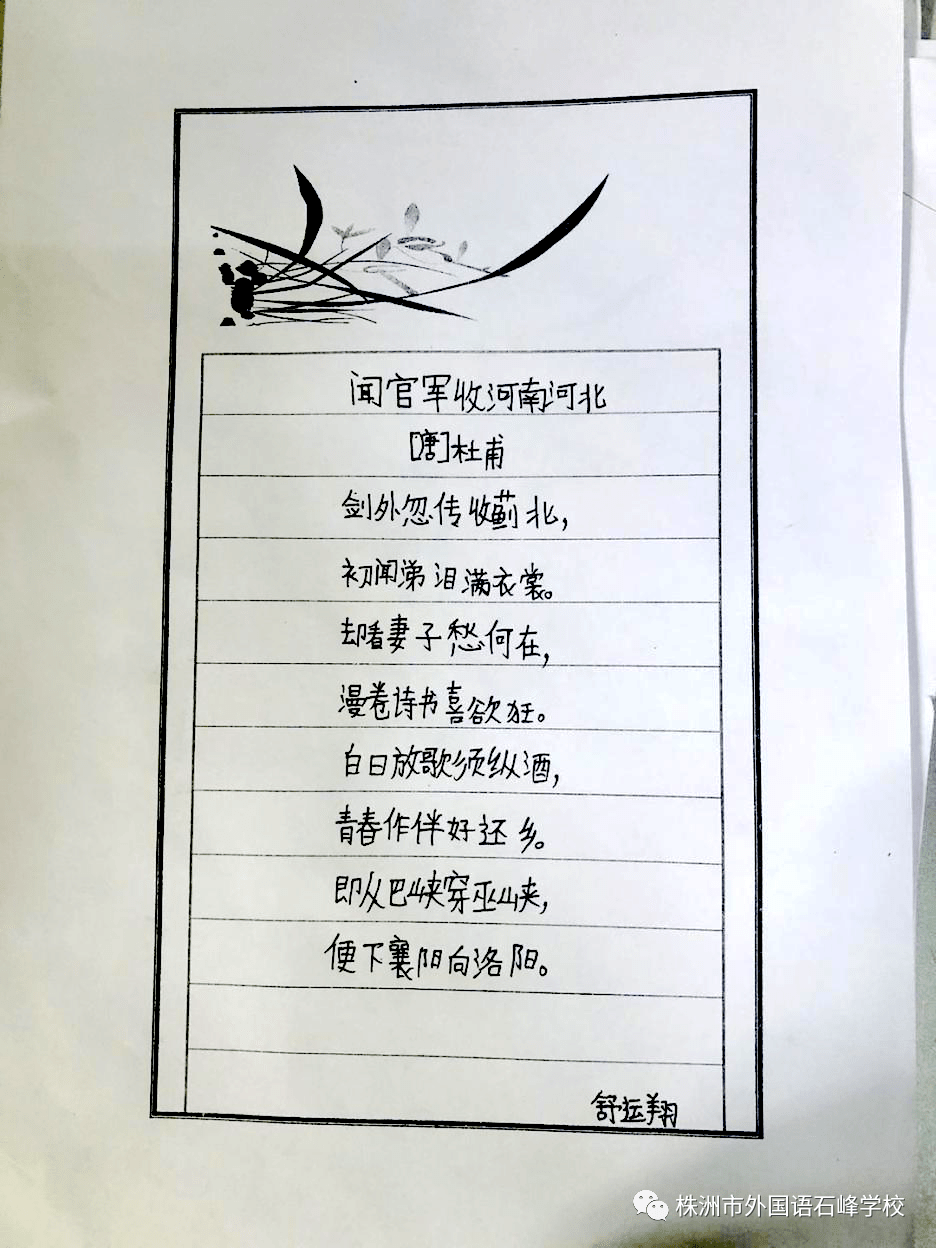 闻官军收河南河北
[唐]杜甫
剑外忽传收蓟北，
初闻涕泪满衣裳。
却看妻子愁何在，
漫卷诗书喜欲狂。
白日放歌须纵酒，
青春作伴好还乡。
即从巴峡穿巫峡，
便下襄阳向洛阳。
舒运翔
株洲市外国语石峰学校